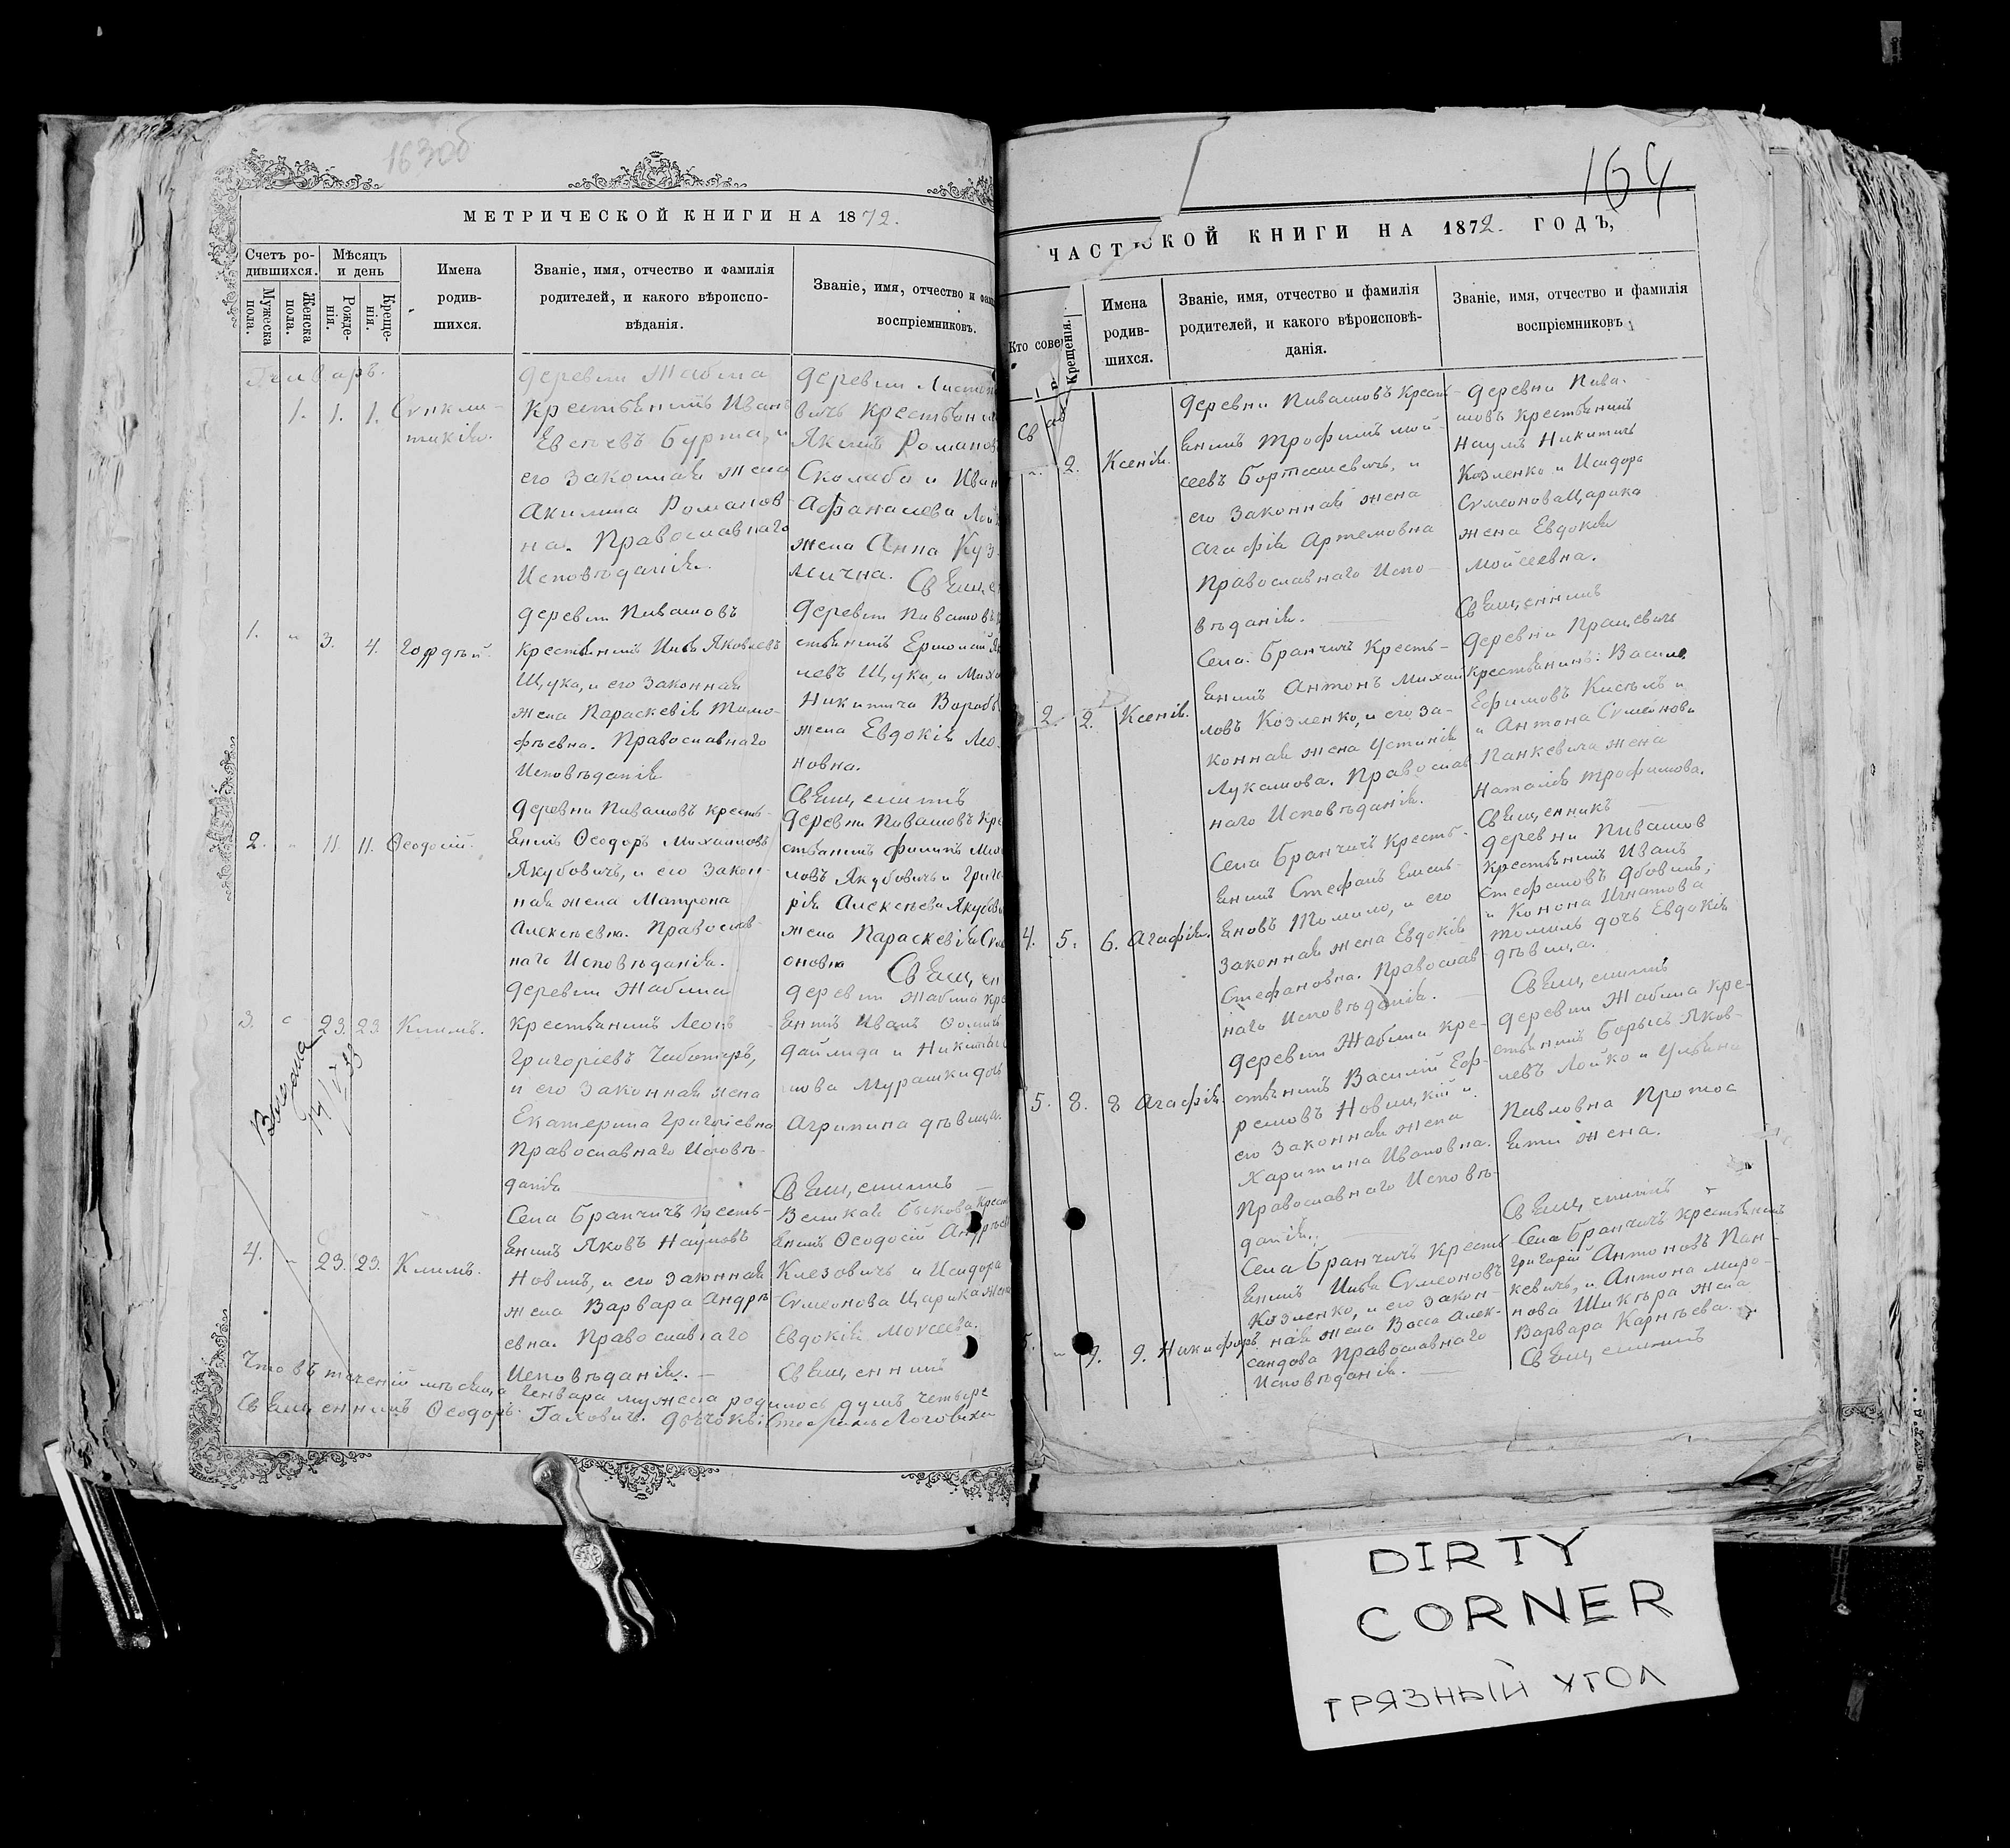 163об
МЕТРИЧЕСКОЙ КНИГИ НА 1872.
Счетъ ро-
дившихся.
Мѣсяцъ
и день
Мужеска
пола.
Женска
пола.
Рожде-
нія.
Креще-
нія.
Имена
родив-
шихся.
Званіе, имя, отчество и фамилія
родителей, и какого вѣроиспо-
вѣданія.
Званіе, имя, отчество и
воспріемниковъ.
1. 1. 1.
Деревни Жабина
Крестьянинъ Иванъ
Евсѣевъ Бурта, и
его Законная жена
Акилина Романов-
на. Православнаго
Исповѣданія.
Деревни
вичь Крестьянин
Якимъ Романов
Сколаба и Иван
Афанасіева
жена Анна Куз-
мична.
1. " 3. 4. Гордѣй.
Деревни Пивашовъ
Крестьянинъ Ива Яковлевъ
Щука, и его Законная
жена Параскевія Тимо-
фѣевна. Православнаго
Исповѣданія
Деревни Пивашовъ
стьянинъ Ермолай
левъ Щука, и Миха
Никитича Вораб
жена Евдокія Лео-
новна.
Священникъ
2. " 11. 11. Ѳеодосій.
Деревни Пивашовъ Кресть-
янинъ Ѳеодоръ Михаиловъ
Якубовичъ, и его Закон-
ная жена Матрона
Алексѣевна. Православ-
наго Исповѣданія.
Деревни Пивашовъ Кре
стьянинъ Филипъ
ловъ Якубовичь и Григо
рія Алексѣева Якубов
жена Параскевія
оновна
3. 23. 23. Климъ.
Деревни Жабина
Крестьянинъ Леонъ
Григоріевъ Чаботаръ,
и его Законная жена
Екатерина Григоріевна
Православнаго Исповѣ-
данія
Деревни Жабина Кре
янинъ Иванъ Ѳомичъ
Дайлида и
нова Мурашки дочь
Агрипина дѣвица.
Священникъ
4. 23. 23. Климъ.
Села Бранчичъ Кресть-
янинъ Яковъ Наумовъ
Новикъ, и его Законная
жена Варвара Андрѣ-
евна. Православнаго
Исповѣданія. —
Великая Быковa Крест
янинъ Ѳеодосій Андрѣев
Клезовичь и Исидора
Сѵмеонова Царика жена
Евдокія Моисеева.
Священникъ
Что въ теченіи мѣсяца Генвара мужеска родилось душъ четыре
Священникъ Ѳеодоръ
164
ЧАСТ СКОЙ КНИГИ НА 1872. ГОДЪ,
Кто сове
Крещенія.
Имена
родив-
шихся.
Званіе, имя, отчество и фамилія
родителей, и какого вѣроисповѣ-
данія.
Званіе, имя, отчество и фамилія
воспріемниковъ
2. Ксенія.
Деревни Пивашовъ Кресть-
янинъ Трофимъ Мой-
сеевъ Борташевичъ, и
его Законная жена
Агафія Артемовна
Православнаго Испо-
вѣданія.
Деревни Пива-
шовъ Крестьянинъ
Наумъ Никитичь
Козленко и Исидора
Сѵмеонова Царика
жена Евдокія
Мойсеевна.
Священникъ
2. 2. Ксенія.
Села Бранчичъ Кресть-
янинъ Антонъ Михай
ловъ Козленко, и его за-
конная жена Устинія
Лукашова. Православ
наго Исповѣданія.
Деревни Працевичь
Крестьянинъ: Василь
Ефимовъ Кисѣль и
и Антона Сѵмеонова
Панкевича жена
Наталія Трофимова.
Священникъ
4. 5. 6. Агафія.
Села Бранчичъ Кресть-
янинъ Стефанъ Емель-
яновъ Томило, и его
Законная жена Евдокія
Стефановна. Православ-
наго Исповѣданія.
Деревни Пивашов
Крестьянинъ Иванъ
Стефановъ
и Конона Игнатова
Томиль дочь Евдокія
дѣвица.
Священникъ
5. 8. 8 Агафія.
Деревни Жабина Кре-
стьянинъ Василій Еф-
ремовъ Новицкій и
его Законная жена
Харитина Ивановна.
Православнаго Исповѣ-
данія.
Деревни Жабина Кре-
стьянинъ Борысъ Яков-
левъ Лойко и Уліяна
Павловна Протас
жена.
Священникъ
5. " 9. 9. Никифоръ
Села Бранчичъ Кресть-
янинъ Ива Сѵмеоновъ
Козленко, и его Закон-
ная жена Васса Алек-
сандова Православнаго
Исповѣданія.
Села Бранчичъ Крестьянинъ
Григорій Антоновъ Пан-
кевичъ, и Антона Миро-
нова Шикѣра жена
Варвара Карнѣева.
Священникъ
DIRTY
CORNER
ГРЯЗНЫЙ УГОЛ